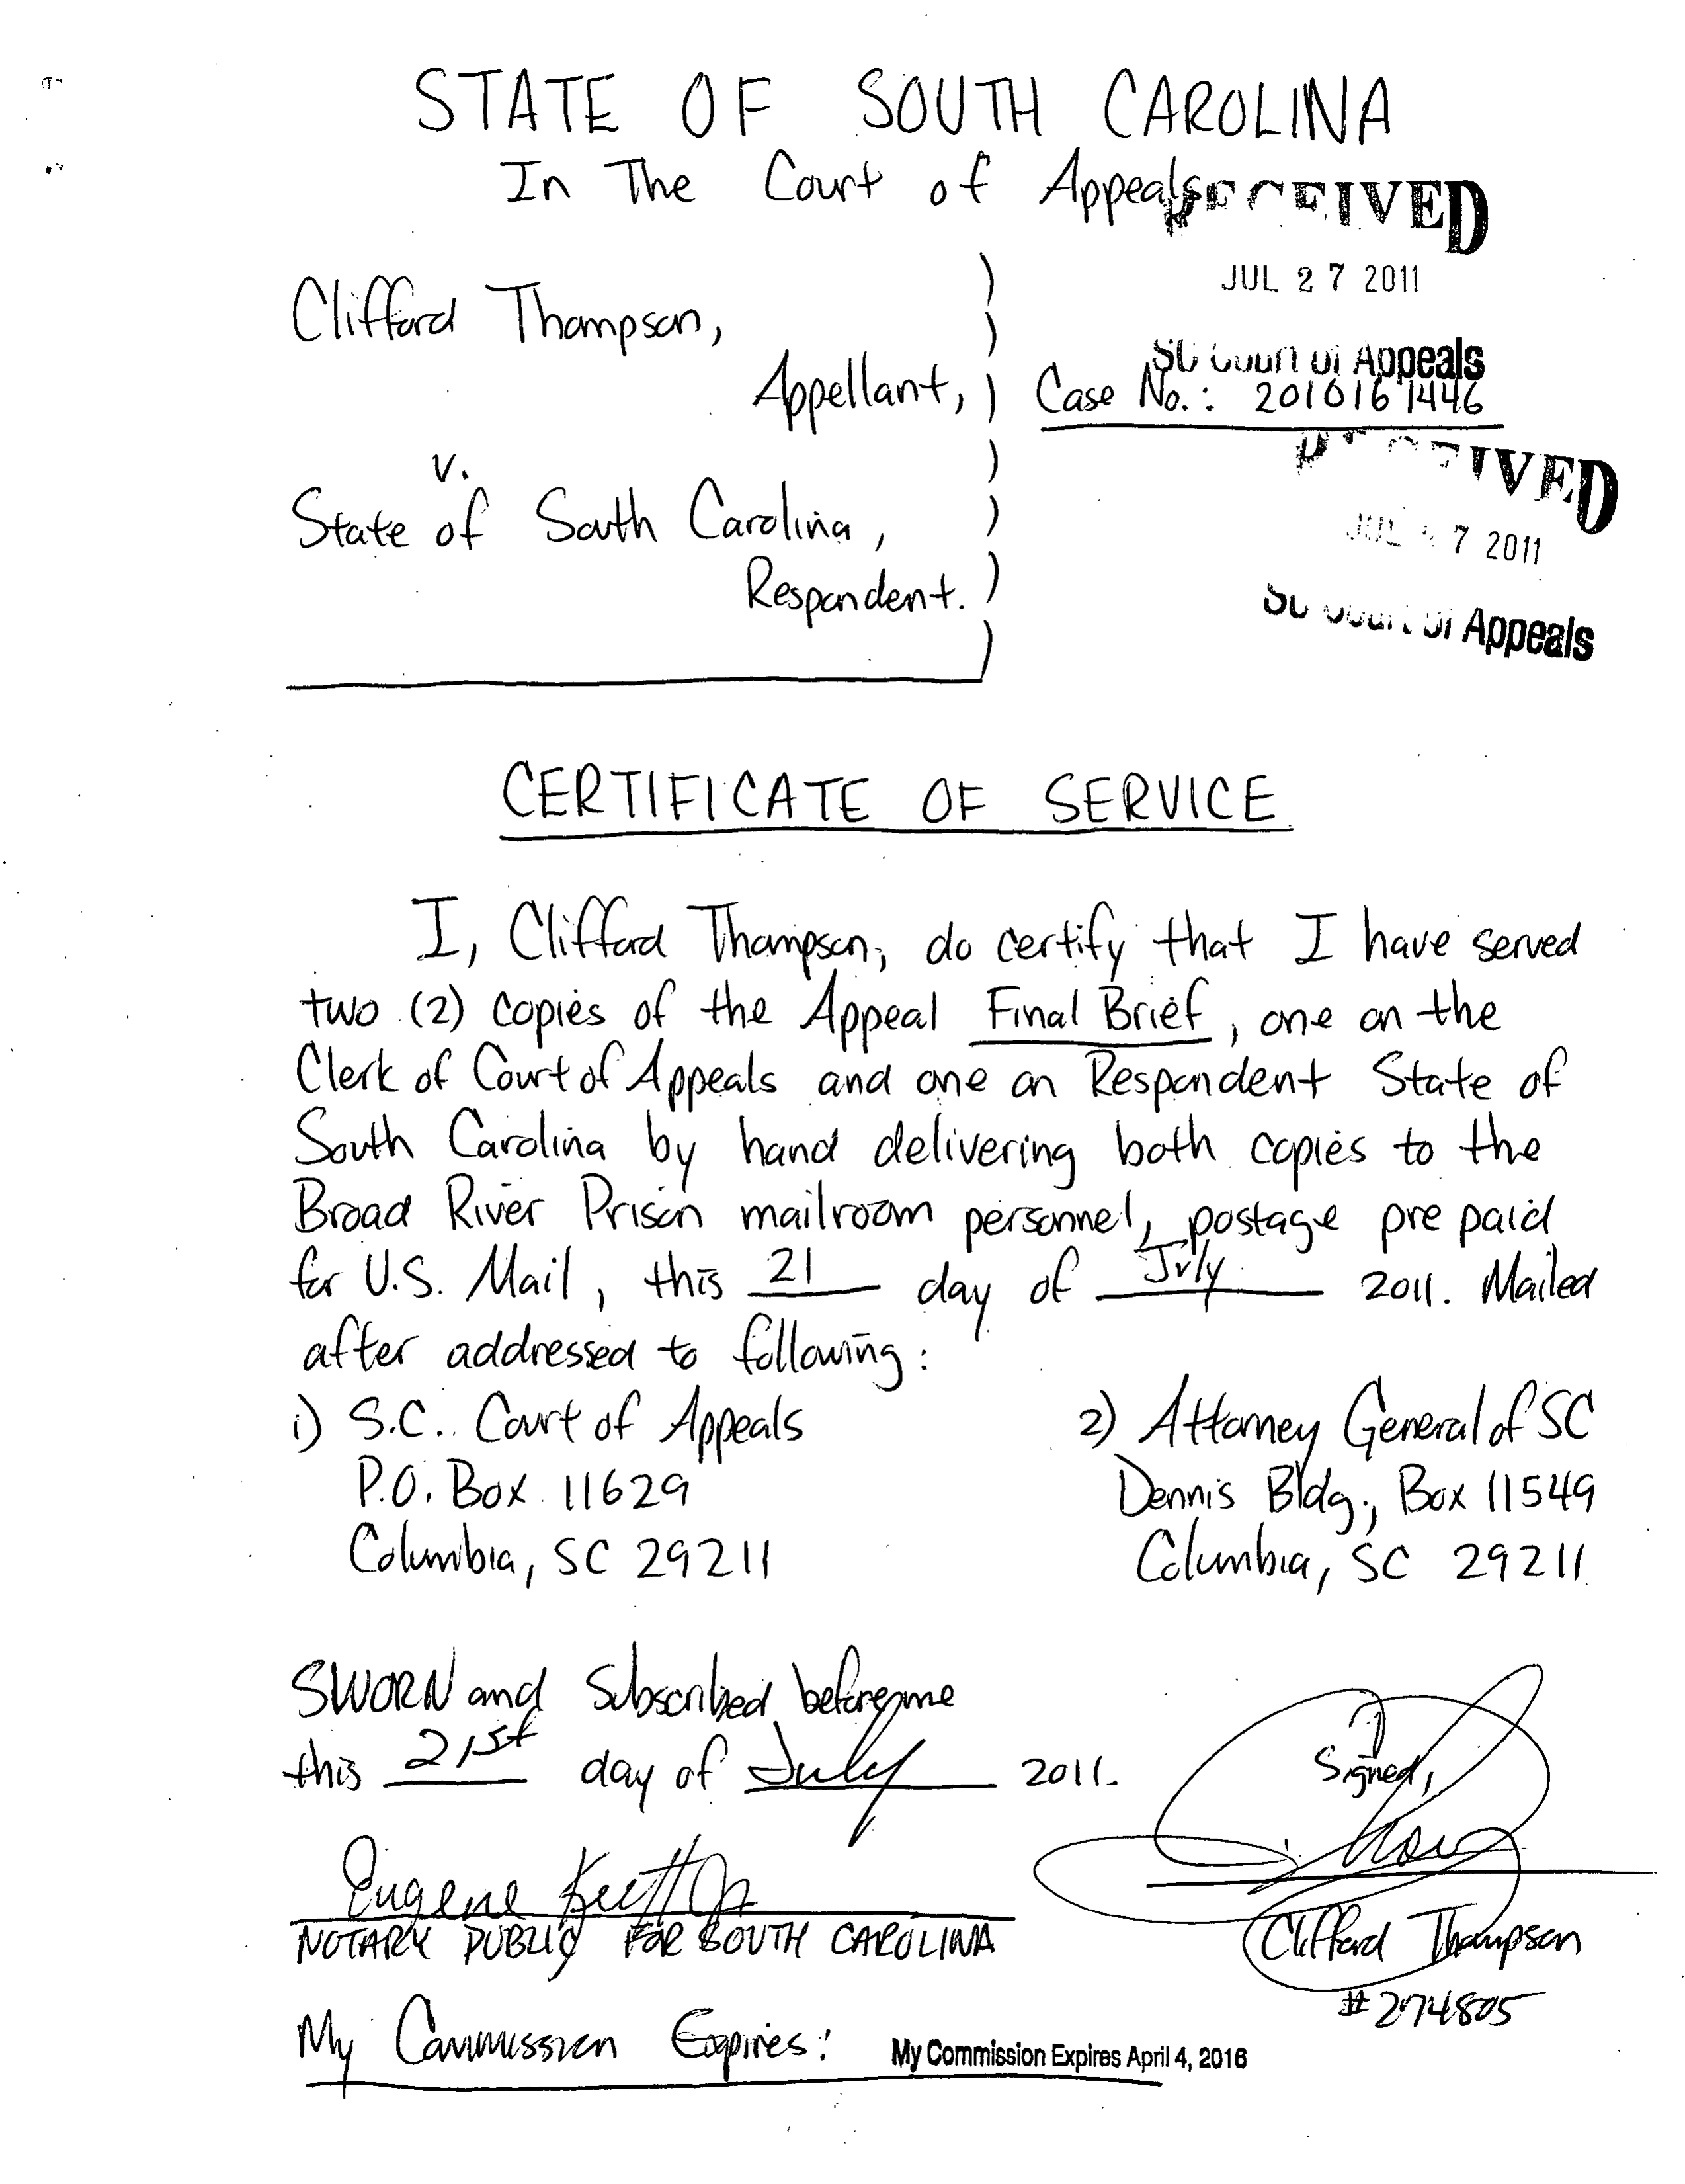 STATE OF SOUTH CAROLINA
In The Court of Appeals
RECEIVED
JUL 27 2011
SC Court of Appeals
Clifford Thompson,
Appellant,
Case No.: 2010161446
v.
State of South Carolina,
Respondent.
RECEIVED
JUL 27 2011
SC Court of Appeals
CERTIFICATE OF SERVICE
I, Clifford Thompson, do certify that I have served
two (2) copies of the Appeal Final Brief, one on the
Clerk of Court of Appeals and one on Respondent State of
South Carolina by hand delivering both copies to the
Broad River Prison mailroom personnel, postage pre paid
for U.S. Mail, this 21 day of July 2011. Mailed
after addressed to following:
1) S.C. Court of Appeals
P.O. Box 11629
Columbia, SC 29211
2) Attorney General of SC
Dennis Bldg., Box 11549
Columbia, SC 29211
SWORN and Subscribed before me
this 21st day of July 2011.
Signed,
Eugene
NOTARY PUBLIC FOR SOUTH CAROLINA
Clifford Thompson
#274805
My Commission Expires: My Commission Expires April 4, 2016